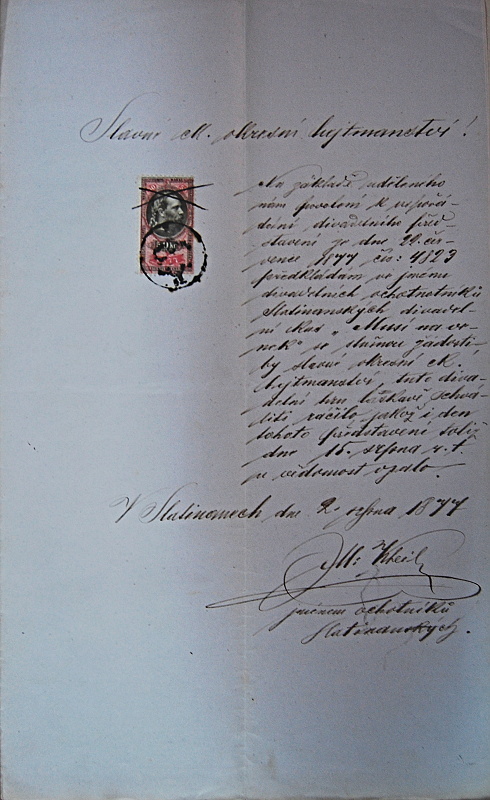 Slavné ck. okresní hejtmanství!
Na základě uděleného
nám povolení k uspořá-
dání divadelního před-
stavení ze dne 29. čer-
vence 1877 čís: 4823
předkládám ve jménu
divadelních ochotnotníků
Slatinanských divadel-
ní kus „Musí na ve-
nek" se slušnou žádostí
by slavné okresní ck.
hejtmanství, tuto diva-
delní hru laskavě schvá-
liti ráčilo jakož i den
tohoto představení totiž
dne 15. srpna t. r.
ve vědomost vzalo.
V Slatinanech dne 2. srpna 1877
M:
jménem ochotníků
slatinanských.